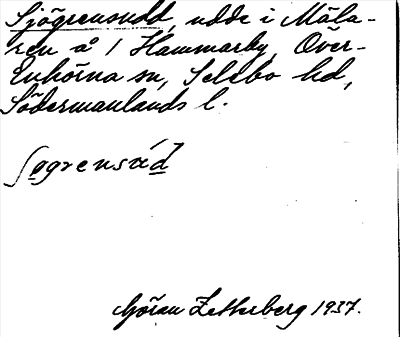 Sjögrensudd, udde i Mäla-
ren å 1 Hammarby, Över-
Enhörna sn, Selebo hd,
Södermanlands l.
ʃøgrensúd
Göran Zetterberg 1937.